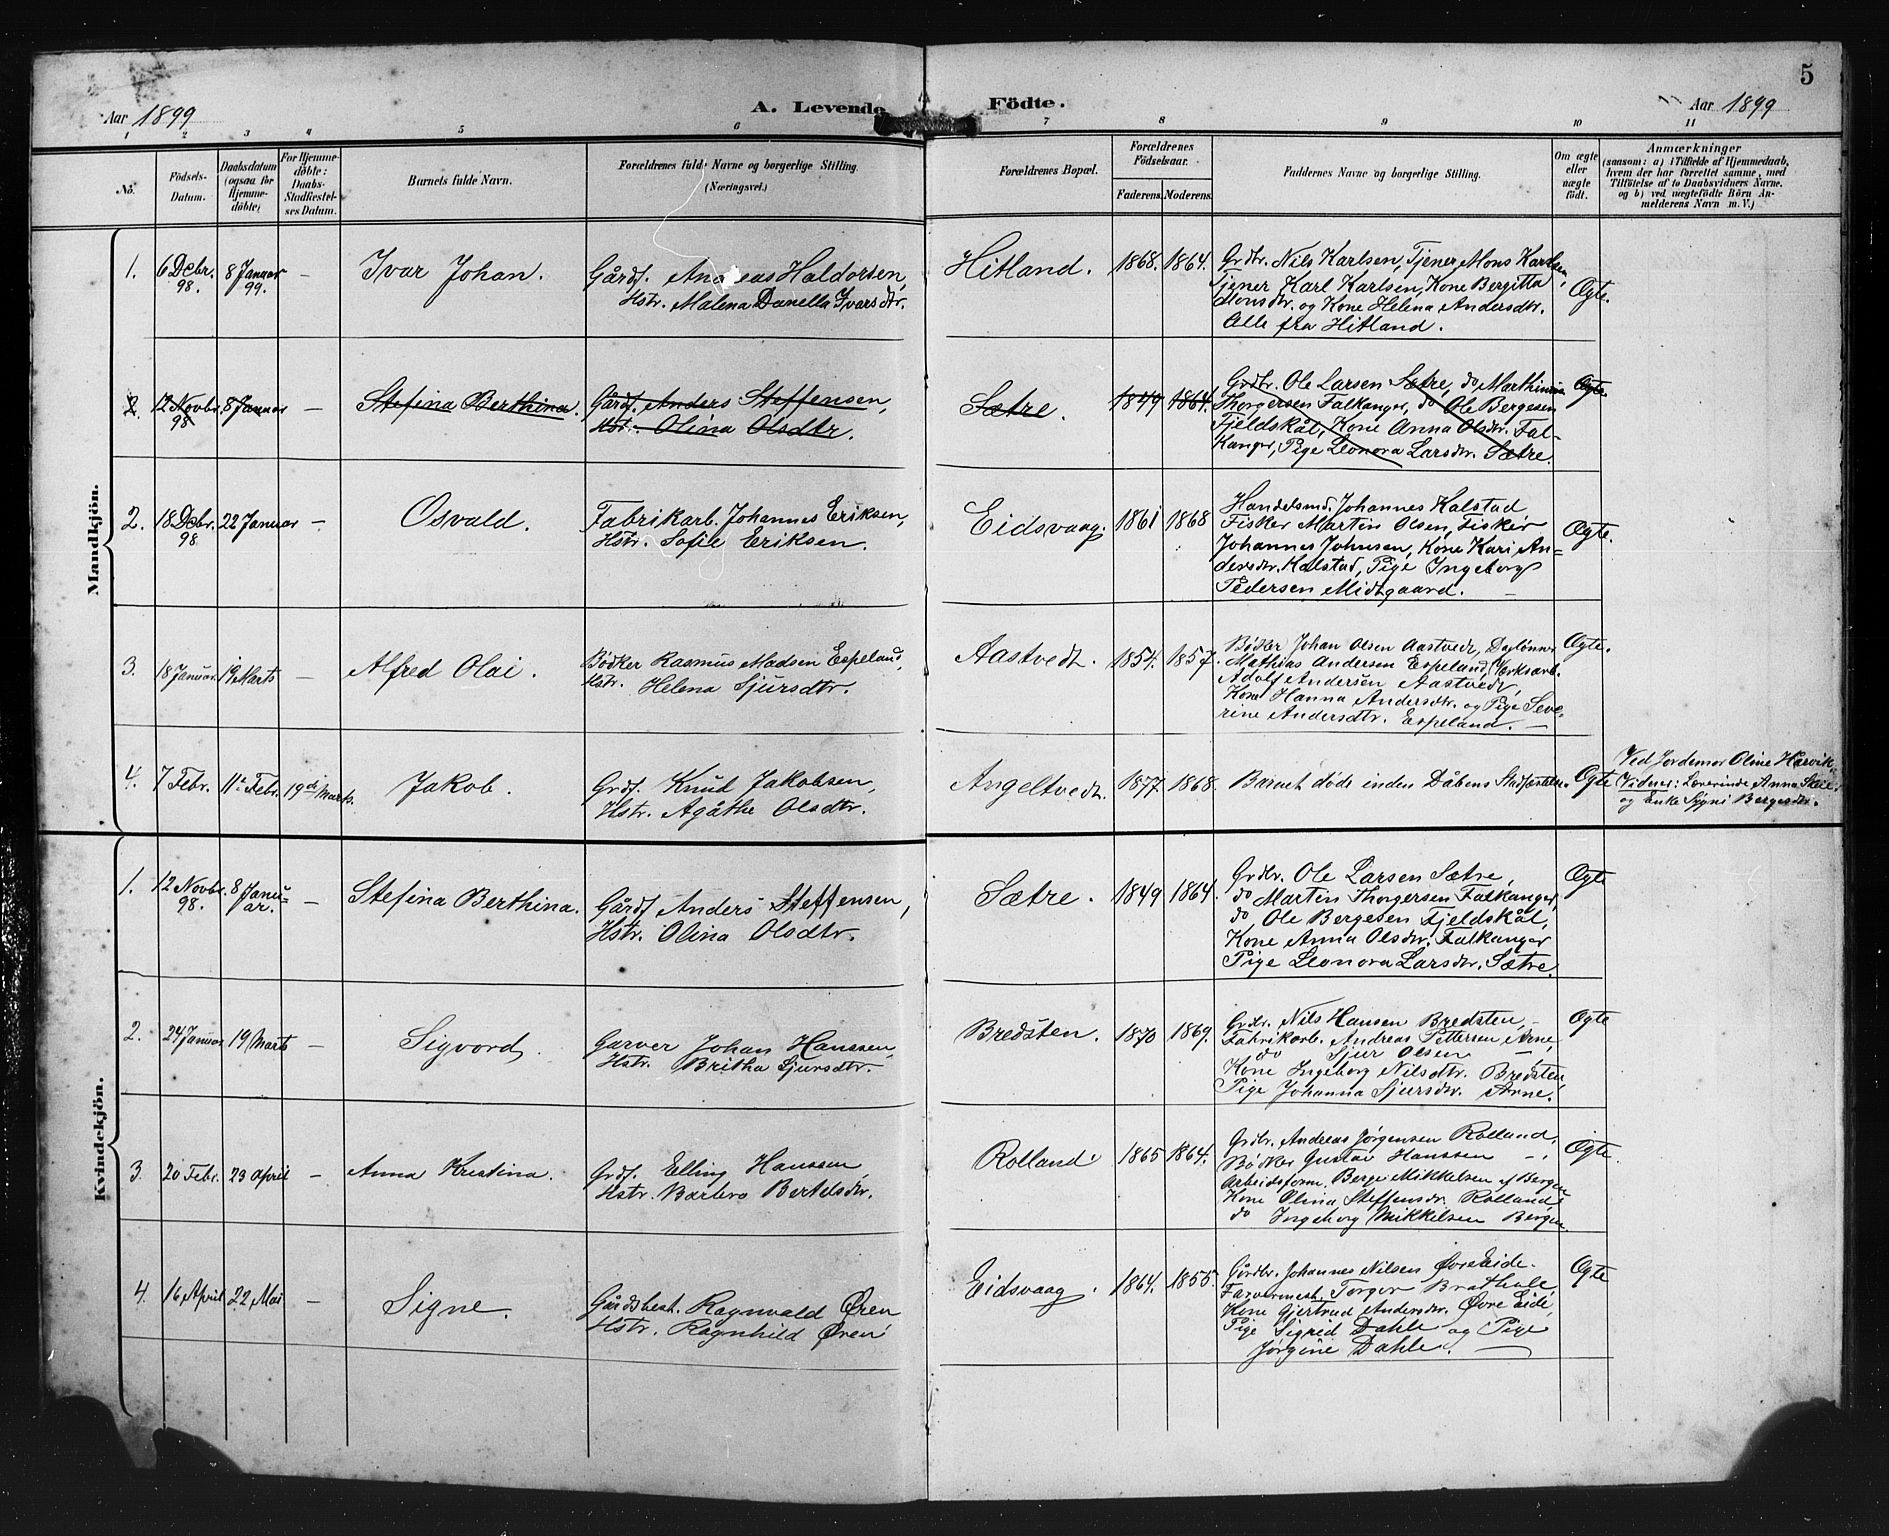 5
Aar 1899
A. Levende
Födte.
Aar 1899
1 2 3 4 5 6 7 8 9 10 11
No.
Födsels-Datum.
Daabsdatum (ogsaa for Hjemme-döbte)
For Hjemme-döbte: Daabs-Stadfæstel-ses Datum.
Barnets fulde Navn.
Forældrenes fulde Navne og borgerlige Stilling. (Næringsvei.)
Forældrenes Bopæl.
Forældrenes Födselsaar.
Faderens. Moderens.
Faddernes Navne og borgerlige Stilling.
Om ægte eller uægte födt.
Anmærkninger
(saasom: a) i Tilfælde af Hjemmedaab, hvem der har forrettet samme, med Tilföielse af to Daabsvidners Navne, og b) ved uægtefödte Börn An-melderens Navn m. V.)
Mandkjön.
1. 6 Debr. 98. 8 Januar 99. – Ivar Johan.
Gårdf. Andreas Haldorsen,
Hstr. Malena Danella Ivarsdtr.
Hitland. 1868. 1864.
Grdbr. Nils Karlsen, Tjener Mons Karlsen,
Tjener Karl Karlsen, Kone Bergitta
Monsdtr. og Kone Helena Andersdtr.
Alle fra Hitland.
Ægte.
2. 12 Novbr. 98 8 Januar – Stefina Berthina.
Gårdf. Anders Steffensen,
Hstr. Olina Olsdtr.
Sætre. 1849 1864.
Grdbr. Ole Larsen Sætre, do Marthinus
Thorgersen Falkanger, do Ole Bergesen
Fjeldskål, Kone Anna Olsdtr. Fal-
kanger, Pige Leonora Larsdtr. Sætre.
Ægte.
2. 18 Debr. 98 22 Januar – Osvald.
Fabrikarb. Johannes Eriksen,
Hstr. Sofie Eriksen.
Eidsvaag. 1861 1868
Handelsmd. Johannes Kalstad
Fisker Martin Olsen, Fisker
Johannes Johnsen, Kone Kari An=
dersdtr. Kalstad, Pige Ingeborg
Pedersen Midtgaard. –
Ægte.
3. 18 Januar. 19 Marts – Alfred Olai.
Bödker Rasmus Madsen Espeland,
Hstr. Helena Sjursdtr.
Aastvedt. 1854. 1857.
Bödker Johan Olsen Aastvedt, Daglönner
Mathias Andersen Espeland, Værksarb.
Adolf Andersen Aastvedt,
Kone Hanna Andersdtr. og Pige Seve-
rine Andersdtr. Espeland. –
Ægte.
4. 7 Febr. 11te Febr. 19de Marts. Jakob.
Grdf. Knud Jakobsen,
Hstr. Agåthe Olsdtr.
Angeltvedt. 1877. 1868.
Barnet döde inden Dåbens Stadfæstelse.
Ægte
Ved Jordemor Oline Harvik.
Vidner: Lærerinde Anna Skeie
og Enke Sygni Bergesdtr.
Kvindekjön.
1. 12 Novbr. 98. 8 Janu-ar. – Stefina Berthina.
Gårdf Anders Steffensen,
Hstr. Olina Olsdtr.
Sætre. 1849 1864.
Grdbr. Ole Larsen Sætre,
do Martin Thorgersen Falkanger,
do Ole Bergesen Fjeldskål,
Kone Anna Olsdtr. Falkanger
Pige Leonora Larsdtr. Sætre.
Ægte
2. 24 Januar. 19 Marts – Sigvord.
Garver Johan Hanssen,
Hstr. Britha Sjursdtr.
Bredsten. 1870 1869.
Grdbr. Nils Hansen Bredsten, –
Fabrikarb. Andreas Pettersen Arne,
do Sjur Olsen –
Kone Ingeborg Nilsdtr. Bredsten,
Pige Johanna Sjursdtr. Arne.
Ægte
3. 20 Febr. 23 april – Anna Kristina.
Grdf. Elling Hanssen
Hstr. Barbro Bertelsdtr.
Rolland. 1865 1864.
Grdbr. Andreas Jörgensen Rolland,
Bödker Gustav Hanssen –
Arbeidsform. Berge Mikkelsen af Bergen
Kone Olina Steffensdtr. Rolland,
do Ingeborg Mikkelsen Bergen.
Ægte.
4. 16 April 22 Mai – Signe.
Gårdsbest. Ragnvald Øren
Hstr. Ragnhild Øren
Eidsvaag. 1864. 1855.
Gårdbr. Johannes Nilsen Øvre Eide.
Farvermest. Torger Brathole,
Kone Gjertrud Andersdtr. Øvre Eide,
Pige Sigrid Dahle og Pige
Jörgine Dahle. –
Ægte